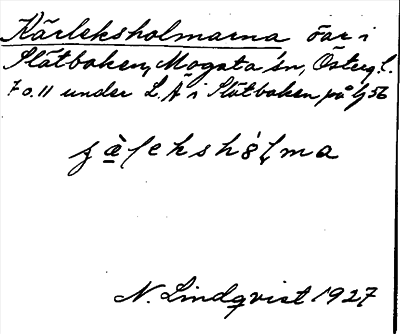 Kärleksholmarna öar i
Slätbaken, Mogata sn, Österg. l.
7 o. 11 under L. Å i Slätbaken på G 56
jä̀leksho̊lma
N. Lindqvist 1927